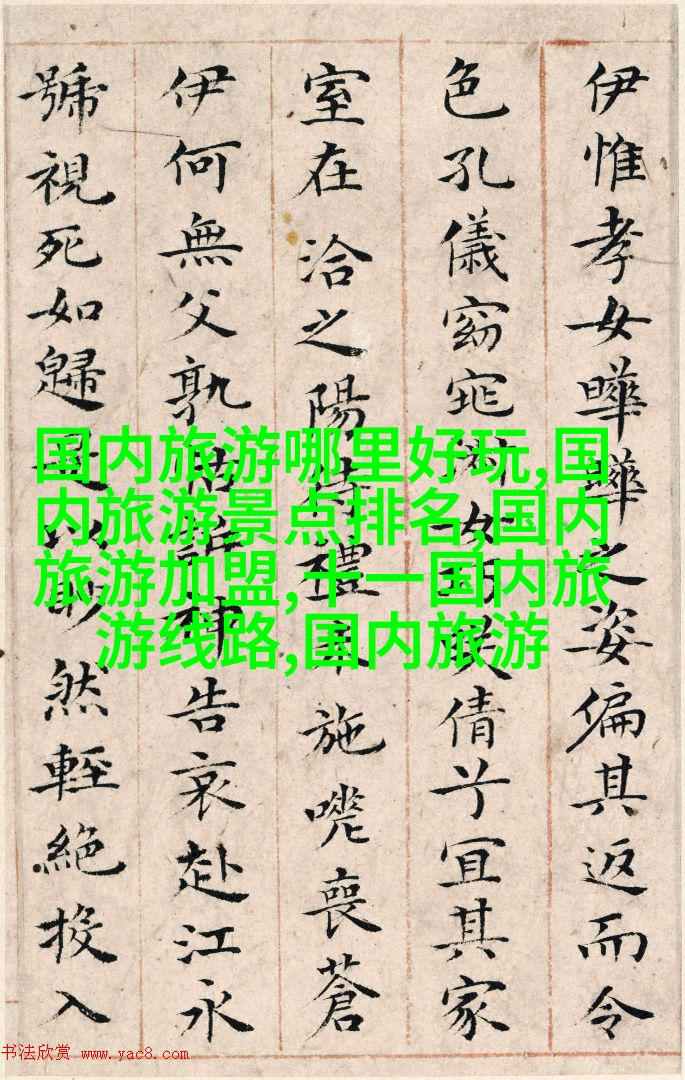 伊惟孝女曄曄之姿偏其返而令
色孔儀窈窕淑女倩兮宜其家
室在洽之陽待禮未施嗟喪蒼
伊何無父孰怙訴神告哀赴江永
號視死如歸是以眇然輕絕投入
国内旅游哪里好玩,国
内旅游景点排名,国内
旅游加盟,十一国内旅
游线路,国内旅游
书法欣赏 www.yac8.com